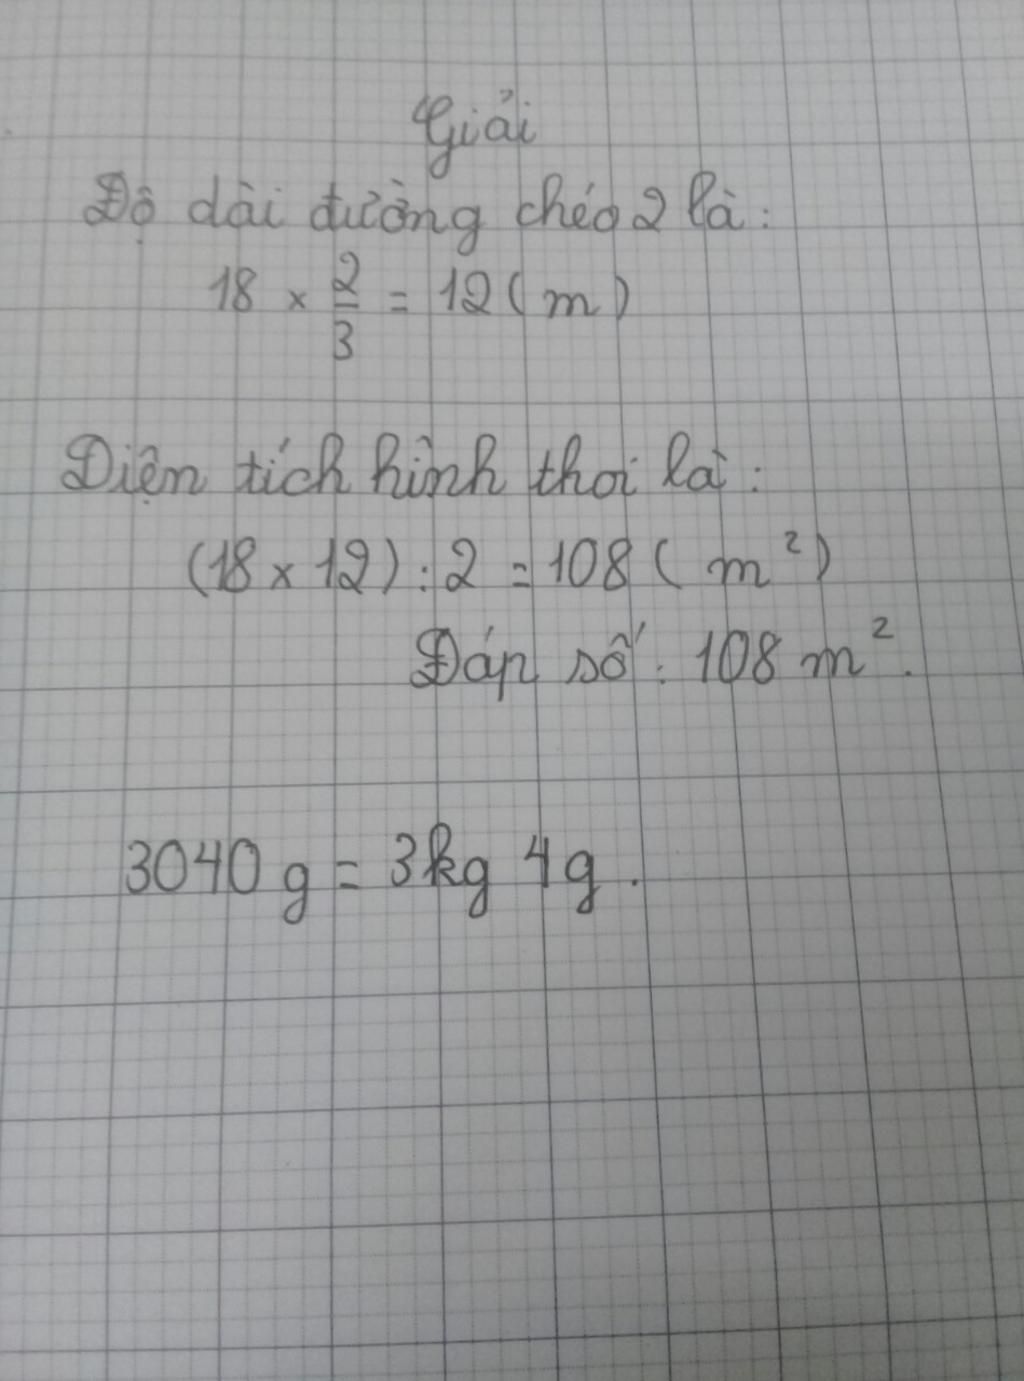 Giải
Độ dài đường chéo 2 là:
18 × 2/3 = 12 ( m )
Diện tích hình thoi là:
(18 × 12) : 2 = 108 ( m²)
Đáp số : 108 m².
3040 g = 3kg 4g.